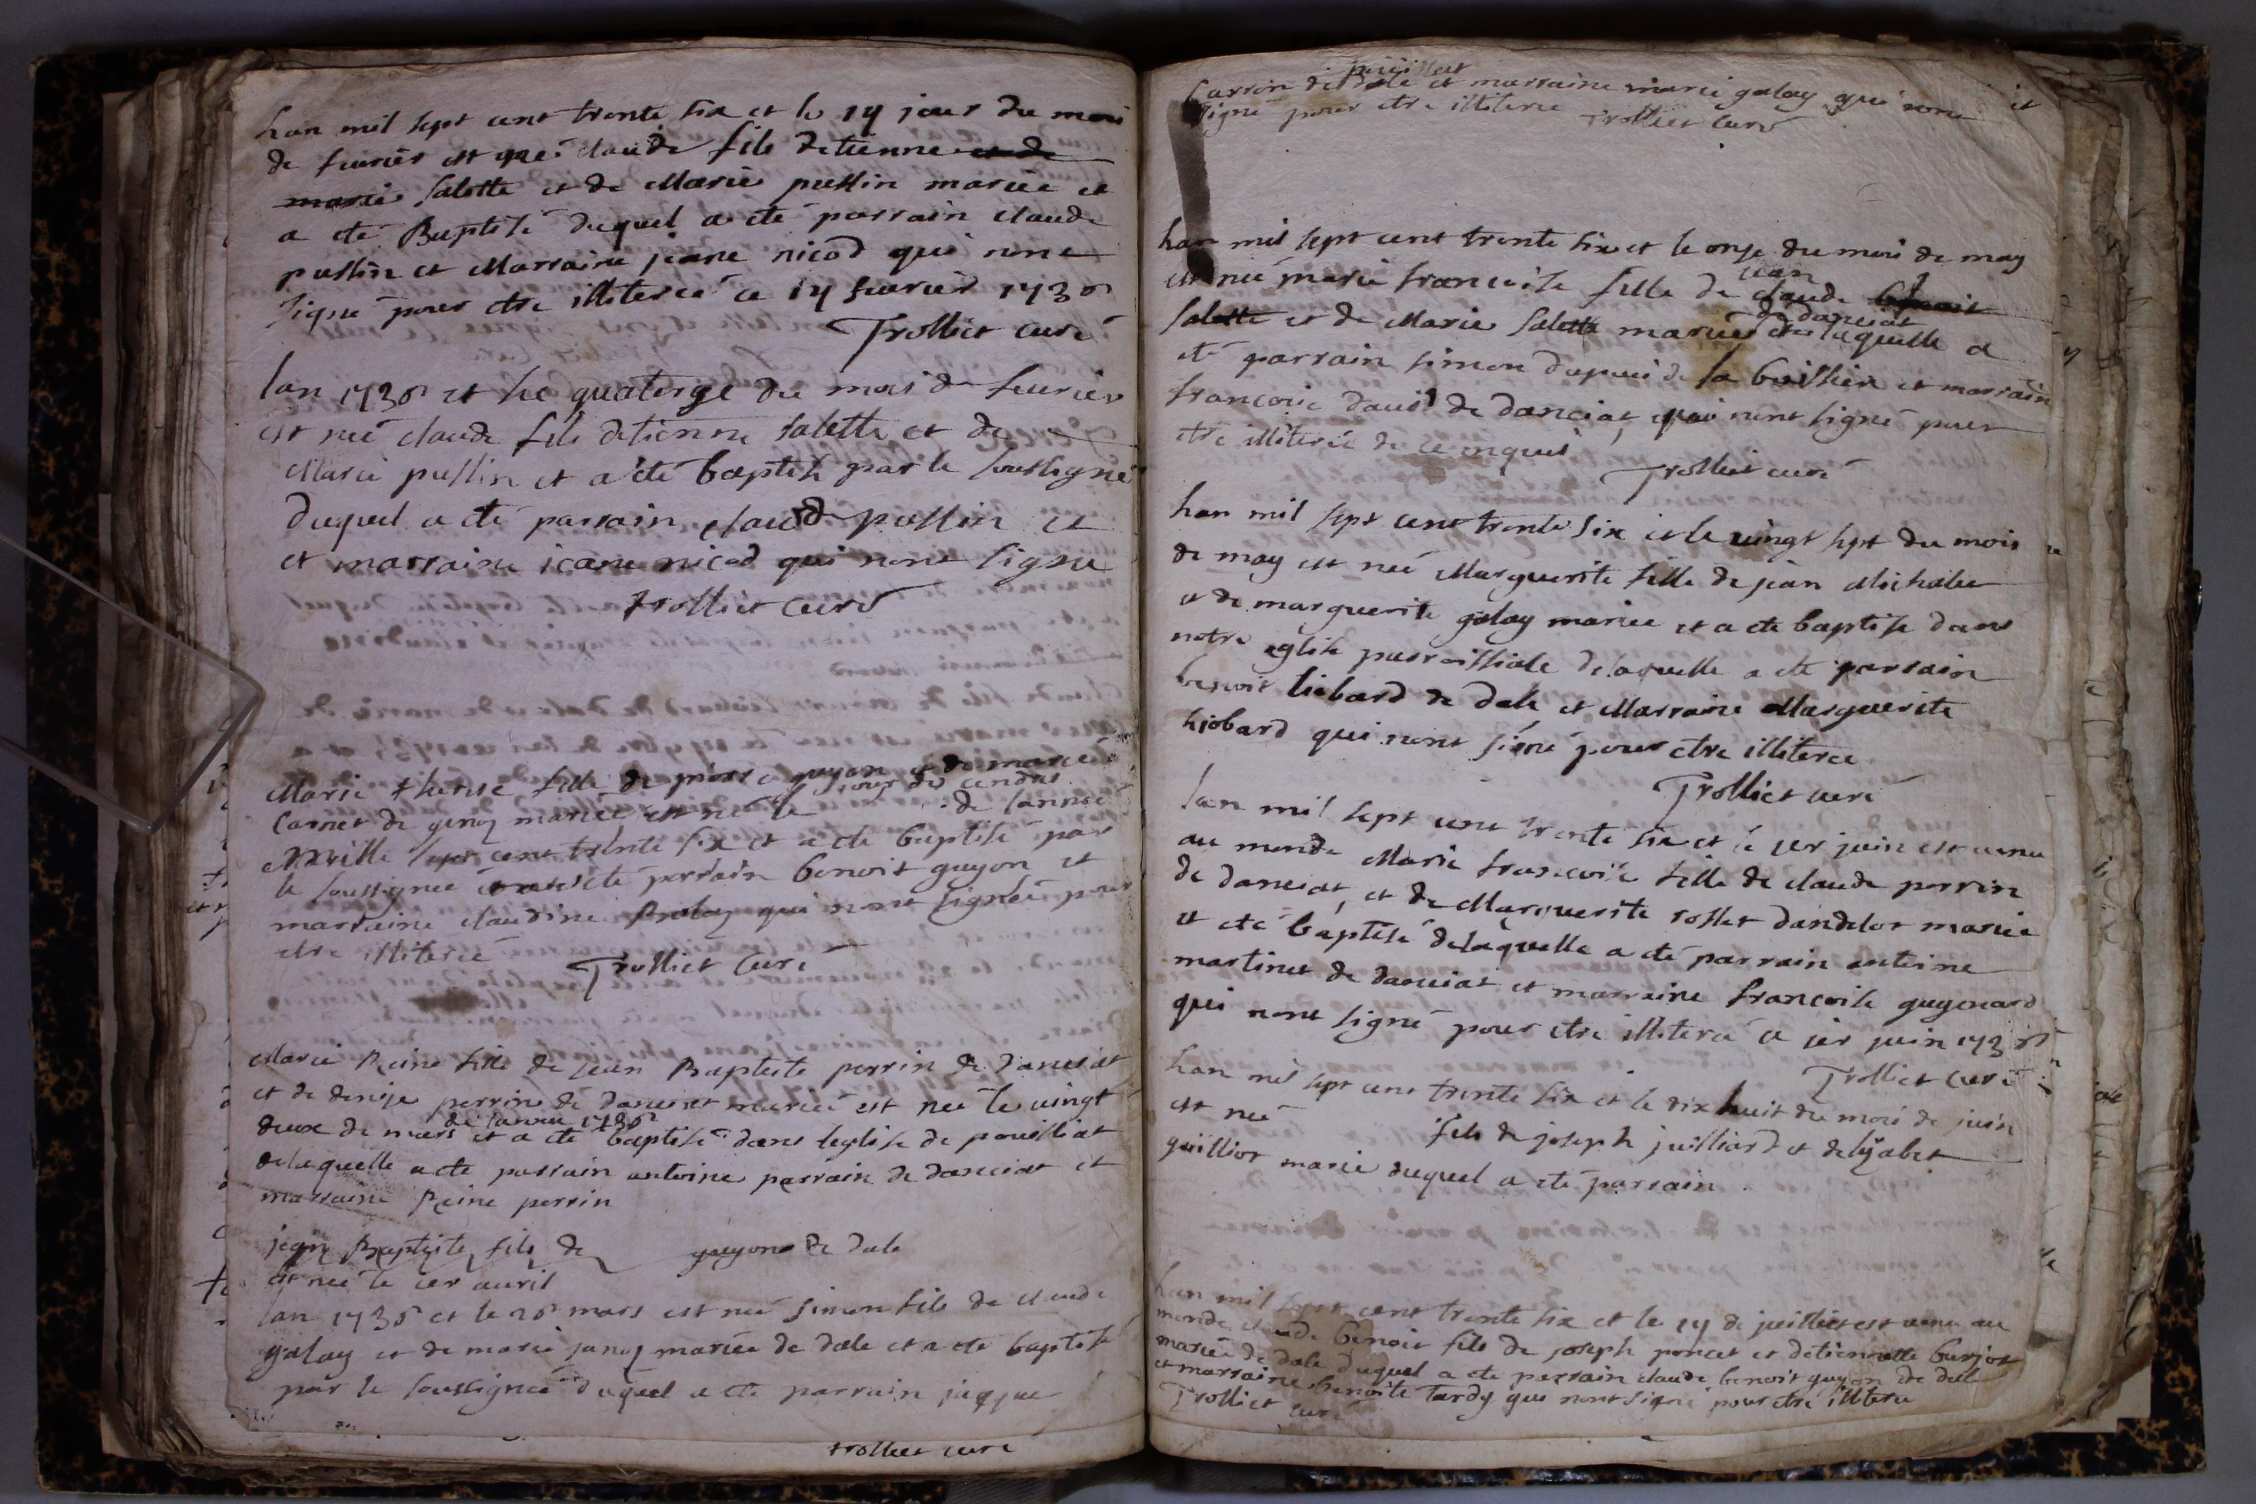 lan mil sept cent trente six et le 14 jour du mois
de fevrier est née claude fils detienne et de
marie salette et de Marie pussin mariée et
a eté Baptisé duquel a eté parrain claude
pussin et Marraine jeane nicod qui nont
signé pour etre illiteree ce 14 fevrier 1736
Trolliet curé
lan 1736 et le quatorze du mois de fevrier
est née claude fils detienne salette et de
Marie pussin et a eté baptisé par le soussigné
duquel a eté parrain claude pussin et
et marraine jeane nicod qui nont signe
trolliet curé
Marie therese fille de pierre guyon et de marie
jour des cendres
Carnet de mariée est née le de lannée
Mille sept cent trente six et a eté baptisé par
le soussignee eté parrain benoit guyon et
marraine claudine qui nont signée pour
etre illiteree
Trolliet Curé
Marie Reine fille de jean Baptiste perrin de danciat
et de denise perrin de danciat mariée est née le vingt
de lannée 1736
deux de mars et a eté baptisé dans leglise de pouilliat
delaquelle a eté parrain antoine parrain de danciat et
marraine Reine perrin
jean Baptiste fils de guyon de dale
est née le ier avril
lan 1736 et le 26 mars est née simon fils de claude
galay et de marie mariée de dale et a eté baptisé
par le soussignée duquel a eté parrain jacque
trolliet curé
de dale et marraine marie galay qui nont
signé pour etre illiteree Trolliet curé
lan mil sept cent trente six et le onze du mois de may
est née marie francoise fille de claude
jean
salette et de Marie salette mariée laquelle a
de danciat
eté parrain simon dupuis de la boissiere et marraine
francoise david de danciat qui nont signé pour
etre illiterée de ce
Trolliet curé
lan mil sept cent trente six et le vingt sept du mois
de may est née Marguerite fille de jean
et de marguerite galay mariee et a eté baptisé dans
notre eglise parroissiale delaquelle a eté parrain
benoit liobard de dale et Marraine Marguerite
liobard qui nont siné pour etre illiteree
Trolliet curé
lan mil sept cent trente six et le ier juin est venu
au monde Marie francoise fille de claude perrin
de danciat, et de Marguerite rosset dandelot mariée
et eté baptisé delaquelle a eté parrain antoine
martinet de danciat et marraine francoise guyenard
qui nont signé pour etre illiteree ce ier juin 1736
Trolliet curé
lan mil sept cent trente six et le dix huit du mois de juin
est née fils de joseph juilliard et delizabet
guilliot marié duquel a eté parrain
lan mil sept cent trente six et le 14 de juilliet est venu au
monde claude benoit fils de joseph poncet et detiennette burjot
mariée de dale duquel a eté parrain claude benoit guyon de dale
et marraine benoite tardy qui nont siné pour etre illiteré
Trolliet curé